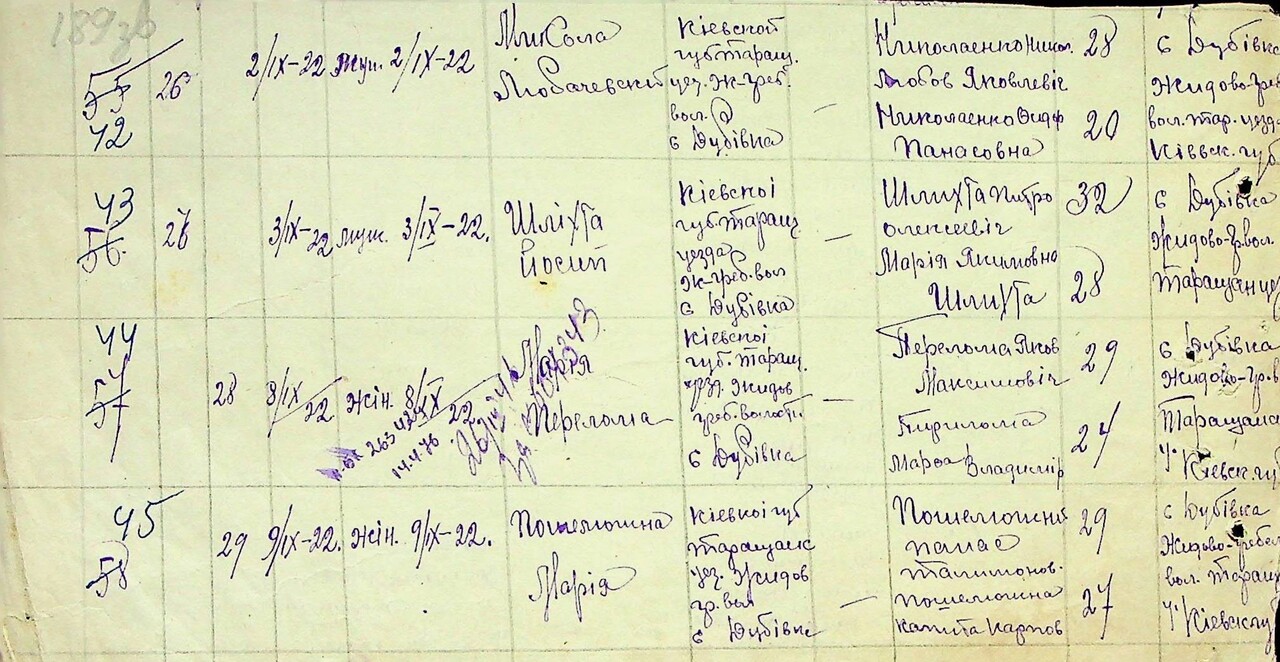 189зв
55 26 2/IX-22 муж. 2/IX-22
42
Микола
Любачевский
Кіевской
губ. Таращ.
уез. Ж-Греб.
вол.
с Дубівка
—
Николаенко
Любов Яковлевіч
Николаенко
Панасовна
28
20
с Дубівка
Жидово-Греб
вол. Тар. уезда
Кіевск. губ
43
56. 27 3/IX-22 муж. 3/IX-22.
Шліхта
Йосип
Кіевскоі
губ. Таращ.
уезда
Ж-Греб. вол
с Дубівка
—
Шлихта Питро
Олексеевіч
Марія Якимовна
Шлихта
32
28
с Дубівка
Жидово-Гр. вол.
Таращан уез
44
57 28 8/IX 22 жін. 8/IX 22
14.4.76
Марія
Перелома
Кіевскоі
губ. Таращ.
уезд. Жидов
греб. волости
с Дубівка
—
Перелома Яков
Максимовіч
Марфа Владимір
29
24
с Дубівка
Жидово-Гр. в
Таращанск
у. Кіевск. губ
45
58 29 9/IX-22. жін. 9/IX-22.
Пошелюжна
Марія
Кіевкоі губ
Таращанск
уез. Жидов
гр. вол
с Дубівка
—
Пошелюжний
Панас
Талимонов.
Пошелюжна
Карпов
29
27
с Дубівка
Жидово-Гребел
вол. Таращ
у. Кіевск. губ